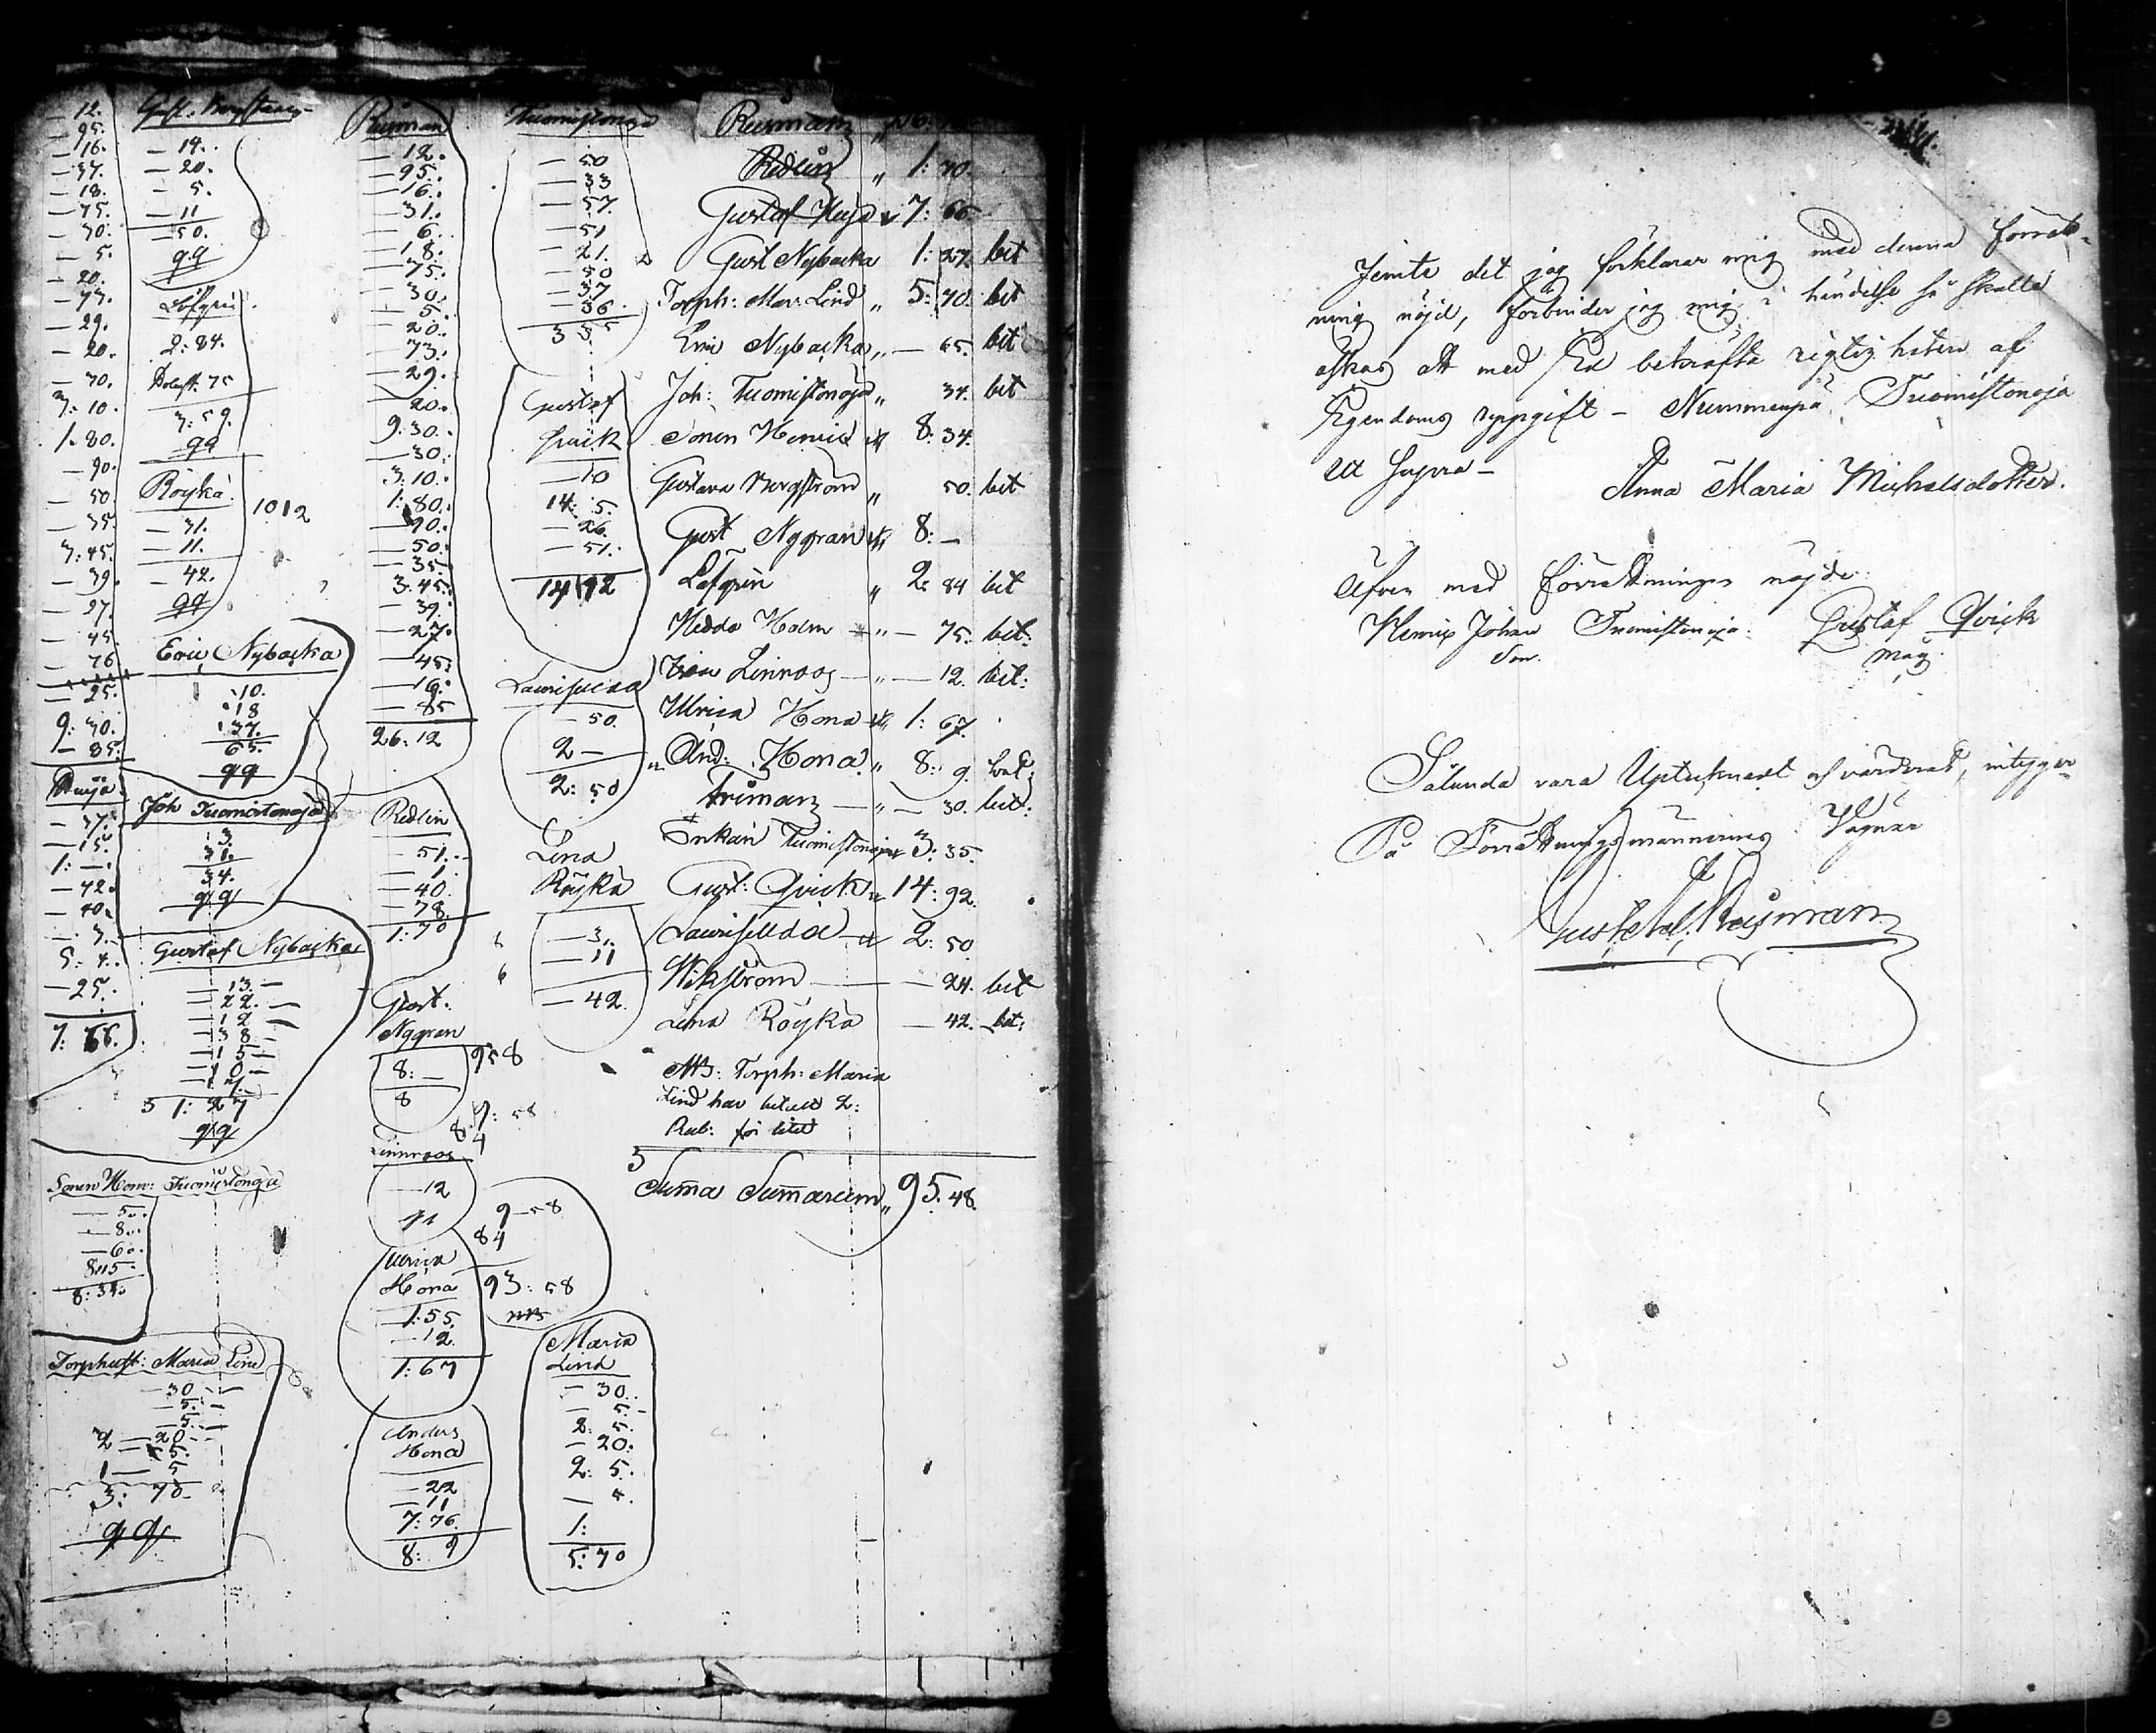 — 12.
— 95.
— 16.
— 37.
— 18.
— 75.
— 30.
— 5.
— 20.
— 73.
— 29.
— 20.
— 30.
3: 10.
1. 80.
— 90.
— 50.
— 35.
3: 45.
— 39.
— 27.
— 45.
— 76
— 25.
9: 30.
— 85.
— 37.
— 15.
1: —.
— 42.
— 40.
— 3.
5: 4.
— 25.
7: 66.
Gust.
— 14.
— 20.
— 5.
— 11
— 50.
qq
Löfgrén
2: 84.
75
3: 59.
qq
Röykä.
— 31.
— 11.
— 42.
qq
1012
Eric Nybacka
10.
18
37.
65.
qq
Joh Tuomistonoja
3.
31.
34.
qq
Gustaf Nybacka
— 13. —
— 22. —
— 12 —
— 38
— 15 —
— 10 —
— 17.
1: 27
qq
Sonen Henr: Tuomistonoja
— 5..
— 8..
— 6..
8:15.
8: 34.
Torphust: Maria Lind
— 30 —
— 5. —
— 5. —
2 — 20 —
— 5.
1 — 5
5: 70.
qq
Reisman
— 12.
— 95.
— 16.
— 31.
— 6.
— 18.
— 75.
— 30.
— 5.
— 20.
— 73.
— 29.
— 20.
9: 30.
— 30.
3: 10.
1: 80.
— 90.
— 50.
— 35.
3: 45.
— 39.
— 27.
— 45.
— 16.
— 85
26: 12
Redlin
— 51.
— 1.
— 40.
— 78.
1: 70
Gust.
Nygren
8: —
8
958
9: 58
84
Linnroos
— 12
qq
9—58
84
93: 58
Ulrica
Hona
1: 55.
— 12.
1: 67
Anders
Hona
— 22
— 11
7: 76.
8: 9
Tuomistonoja
— 50
— 33
— 57.
— 51
— 21.
— 50
— 37
— 36.
3 35
Gustaf
Qvick
— 10
14: 5.
— 26.
— 51.
14 92
Laurisellda
— 50.
2 —
2: 50
Lena
Röykä
— 31.
— 11
— 42.
Maria
Lind
— 30.
— 5.
2: 5.
— 20.
2: 5.
1:
5: 70
Reisman
Redlin „ 1: 70.
Gustaf 7: 66
Gust Nybacka 1: 27. bet
Torph: Mar: Lind „ 5: 70. bet
Eric Nybacka „ — 65. bet
Joh: Tuomistonoja „ 34. bet
Sonen Henric 8: 34.
Gustava Bergström „ 50. bet
Gust Nygren 8: —
Löfgrén „ 2: 84 bet
Hedda Holm „ — 75. bet.
Linnroos — „ — 12. bet:
Ulrica Hona 1: 67.
And: Hona „ 8: 9. bet:
— „ — 30. bet:
Enkan Tuomistonoja 3: 35.
Gust: Qvick 14: 92.
Laurisellda 2: 50
Wikström — — 24. bet
Lena Röykä — 42. bet:
NB: Torph: Maria
Lind har betalt 2:
Rub: för litet
Suma Sumarum „ 95. 48.
Jemte det jag förklarar mig med denna förrätt-
ning nöjd, förbinder jag mig i händelse så skulle
äskas att med Ed bekräfta rigtigheten af
Egendoms uppgift — Nummenpää Tuomistonoja
Ut Supra —
Anna Maria Michelsdotter.
Äfven med Förrättningen nöjde:
Henric Johan Tuomistonoja. Gustaf Qvick
Son. Måg.
Sålunda vara Uptecknadt och värderadt, intygar
På Förrättningsmännernes Vägnar
Reisman